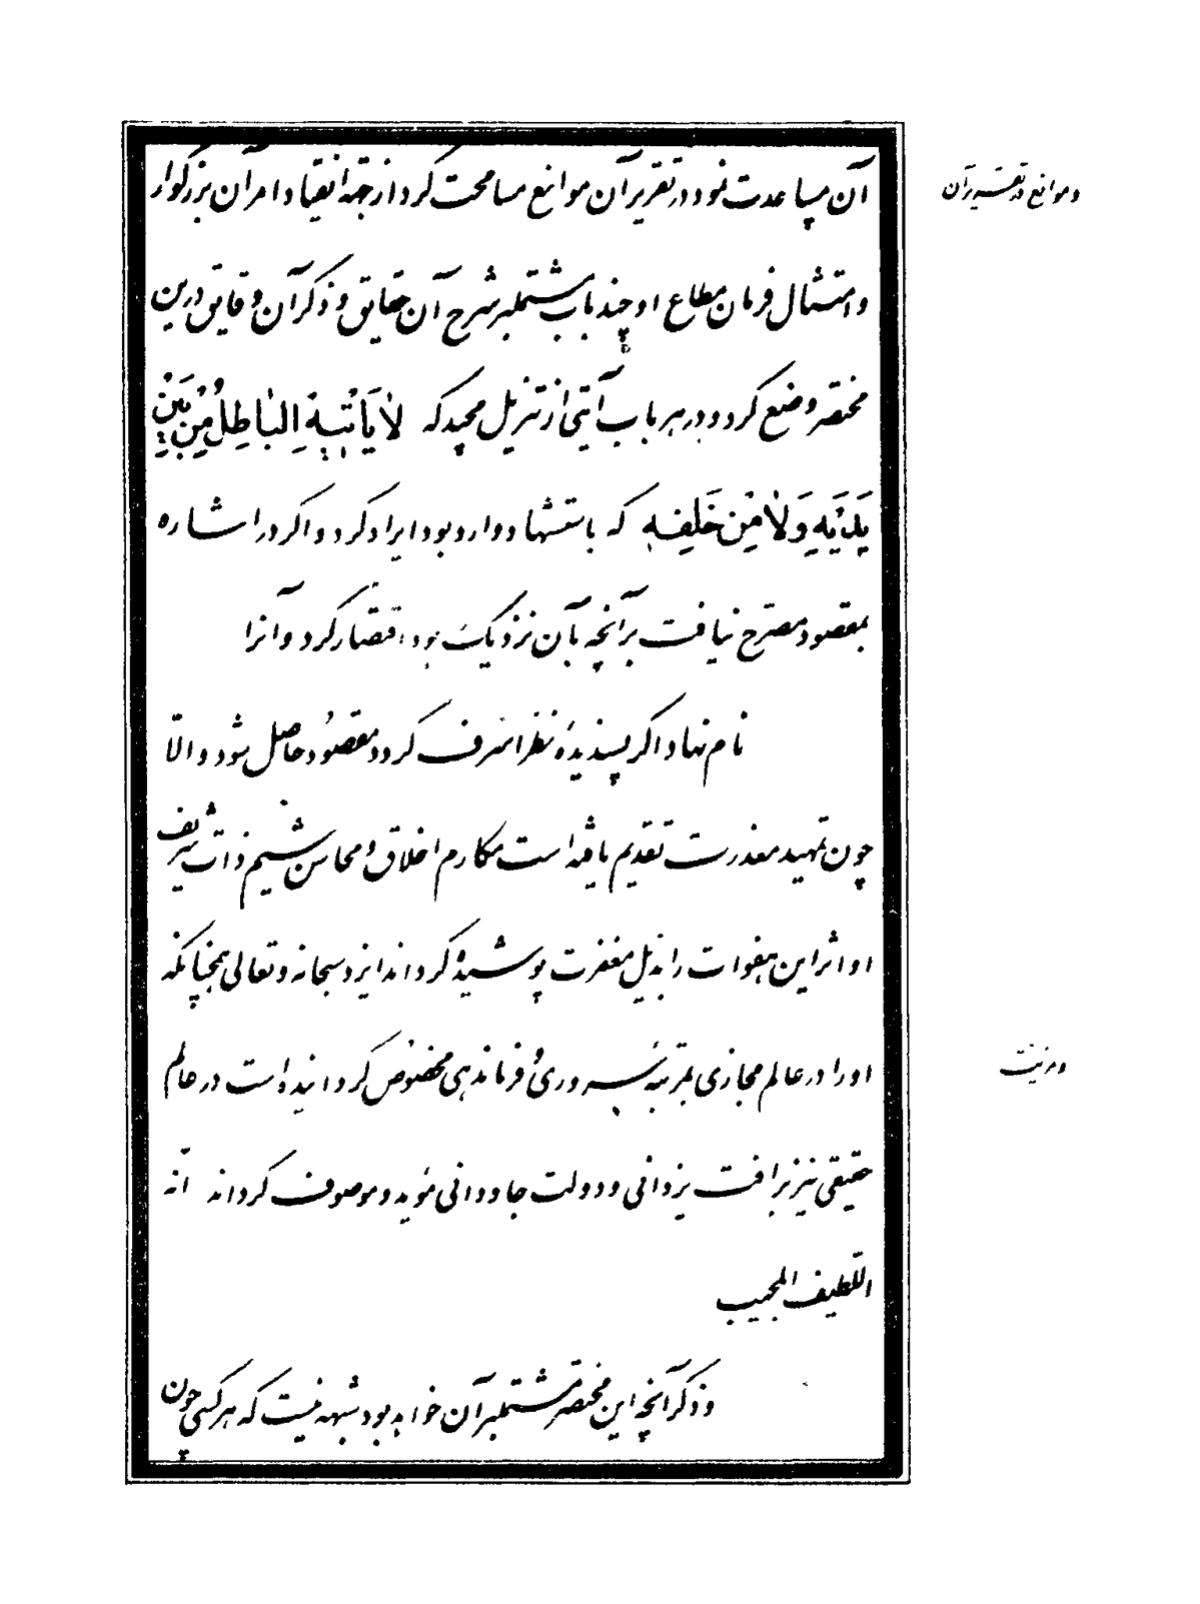 آن مساعدت نمود در تقریر آن موانع مسامحت کرد از جهة انقیاد امر آن بزرکوار
و موانع در تقریر آن
و امتثال فرمان مطاع او چند باب مشتمل بر شرح آن حقایق و ذکر آن دقایق درین
مختصر وضع کرد و در هر باب آیتی از تنزیل مجید که لاٰ یَأتیهِ الباٰطِلُ مِنْ بَیْنِ
یَدَیْهِ وَلاٰ مِنْ خَلفِهِ که باستشهاد وارد بود ایراد کرد و اکر در اشاره
بمقصود مصرح نیافت بر آنچه بآن نزدیک بود اقتصار کرد و آنرا
نام نهاد اکر پسندیدهٔ نظر اشرف کردد مقصود حاصل شود و الّا
چون تمهید معذرت تقدیم یافته است مکارم اخلاق و محاسن شیم ذات شریف
او اثر این هفوات را بذیل مغفرت پوشیده کرداند ایزد سبحانه و تعالی همچنانکه
او را در عالم مجازی بمرتبه سروری و فرماندهی مخصوص کردانیده است در عالم
و مزیت
حقیقی نیز برافت یزدانی و دولت جاودانی مؤید و موصوف کرداند انّه
اللّطیف المجیب
و ذکر آنچه این مختصر مشتمل بر آن خواهد بود شبهه نیست که هر کسی چون